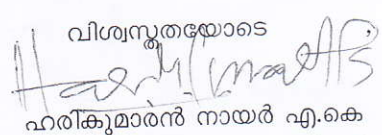 വിശ്വസ്തതയോടെ,
ഹരികുമാരൻ നായർ എ.കെ